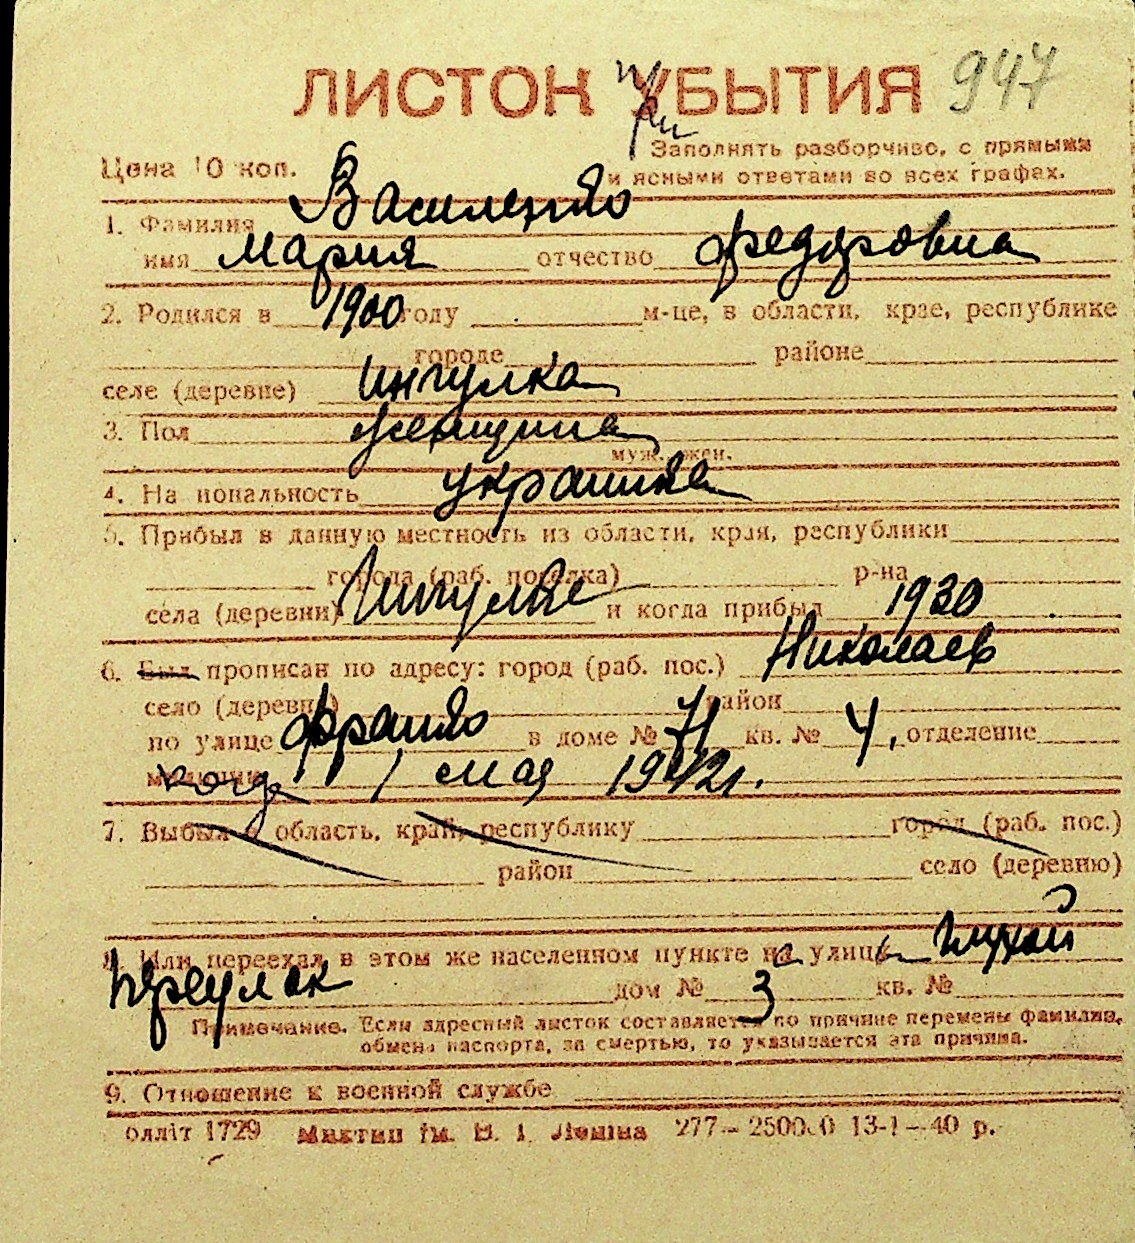 ЛИСТОК УБЫТИЯ 947
при
Цена 10 коп. Заполнять разборчиво, с прямыми
и ясными ответами во всех графах.
1. Фамилия Василенко
имя Мария отчество Федоровна
2. Родился в 1900 году м-це, в области, крае, республике
городе районе
селе (деревне) Ингулка
3. Пол женщина
муж. жен.
4. На иональность украинка
5. Прибыл в данную местность из области, края, республики
города (раб. поселка) р-на
села (деревни) Ингулке и когда прибыл 1930
6. Был прописан по адресу: город (раб. пос.) Николаев
село (деревня) район
по улице Франко в доме № 71 кв. № 4, отделение
милиции когда 1 мая 1942г.
7. Выбыл в область, край, республику город (раб. пос.)
район село (деревню)
8. Или переехал в этом же населенном пункте на улицу Глухой
переулок дом № 3 кв. №
Примечание. Если адресный листок составляется по причине перемены фамилии,
обмена паспорта, за смертью, то указывается эта причина.
9. Отношение к военной службе
олліт 1729 ім. В. І. Леніна 277 – 25000 13-1 – 40 р.